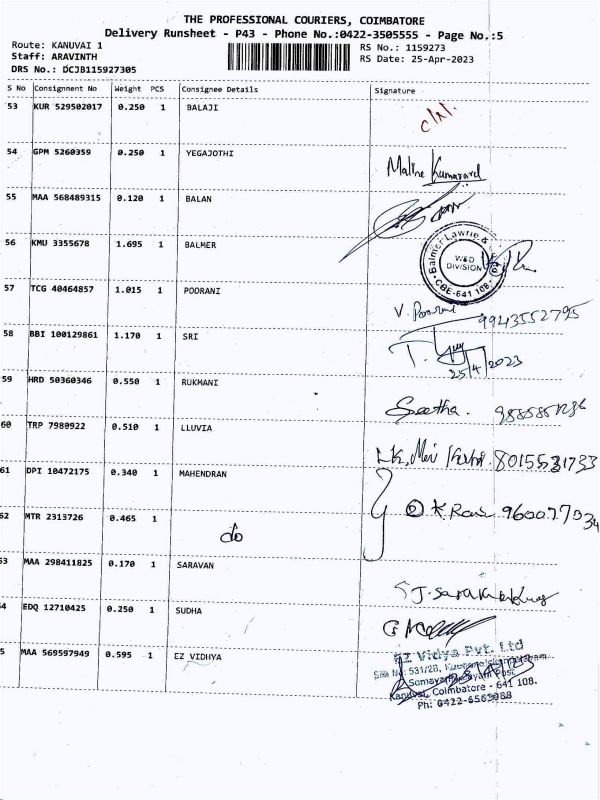 THE PROFESSIONAL COURIERS, COIMBATORE
Delivery Runsheet - P43 - Phone No.:0422-3505555 - Page No.:5
Route: KANUVAI 1
Staff: ARAVINTH
DRS No.: DCJB115927305
RS No.: 1159273
RS Date: 25-Apr-2023
S No Consignment No Weight PCS Consignee Details Signature
53 KUR 529502017 0.250 1 BALAJI
54 GPM 5260359 0.250 1 YEGAJOTHI
55 MAA 568489315 0.120 1 BALAN
56 KMU 3355678 1.695 1 BALMER
Balmer Lawrie &
W&D
DIVISION
CBE-641 108.
57 TCG 40464857 1.015 1 POORANI
V. 9943552795
58 BBI 100129861 1.170 1 SRI
25/4/2023
59 HRD 50360346 0.550 1 RUKMANI
Seetha.
60 TRP 7980922 0.510 1 LLUVIA
61 DPI 10472175 0.340 1 MAHENDRAN
62 MTR 2313726 0.465 1 do
53 MAA 298411825 0.170 1 SARAVAN
54 EDQ 12710425 0.250 1 SUDHA
5 MAA 569597949 0.595 1 EZ VIDHYA
EZ Vidya Pvt. Ltd
Kanuvai, Coimbatore - 641 108.